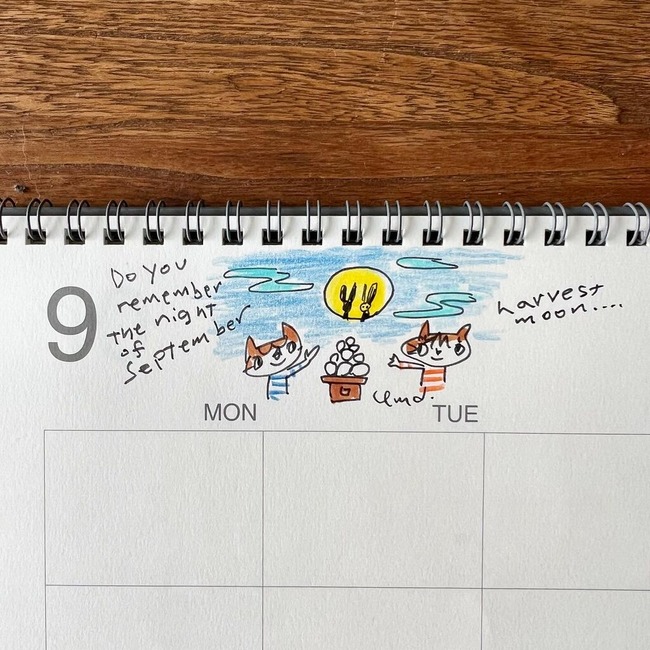 9
Do you
remember
the night
of
September
harvest
moon....
MON
TUE